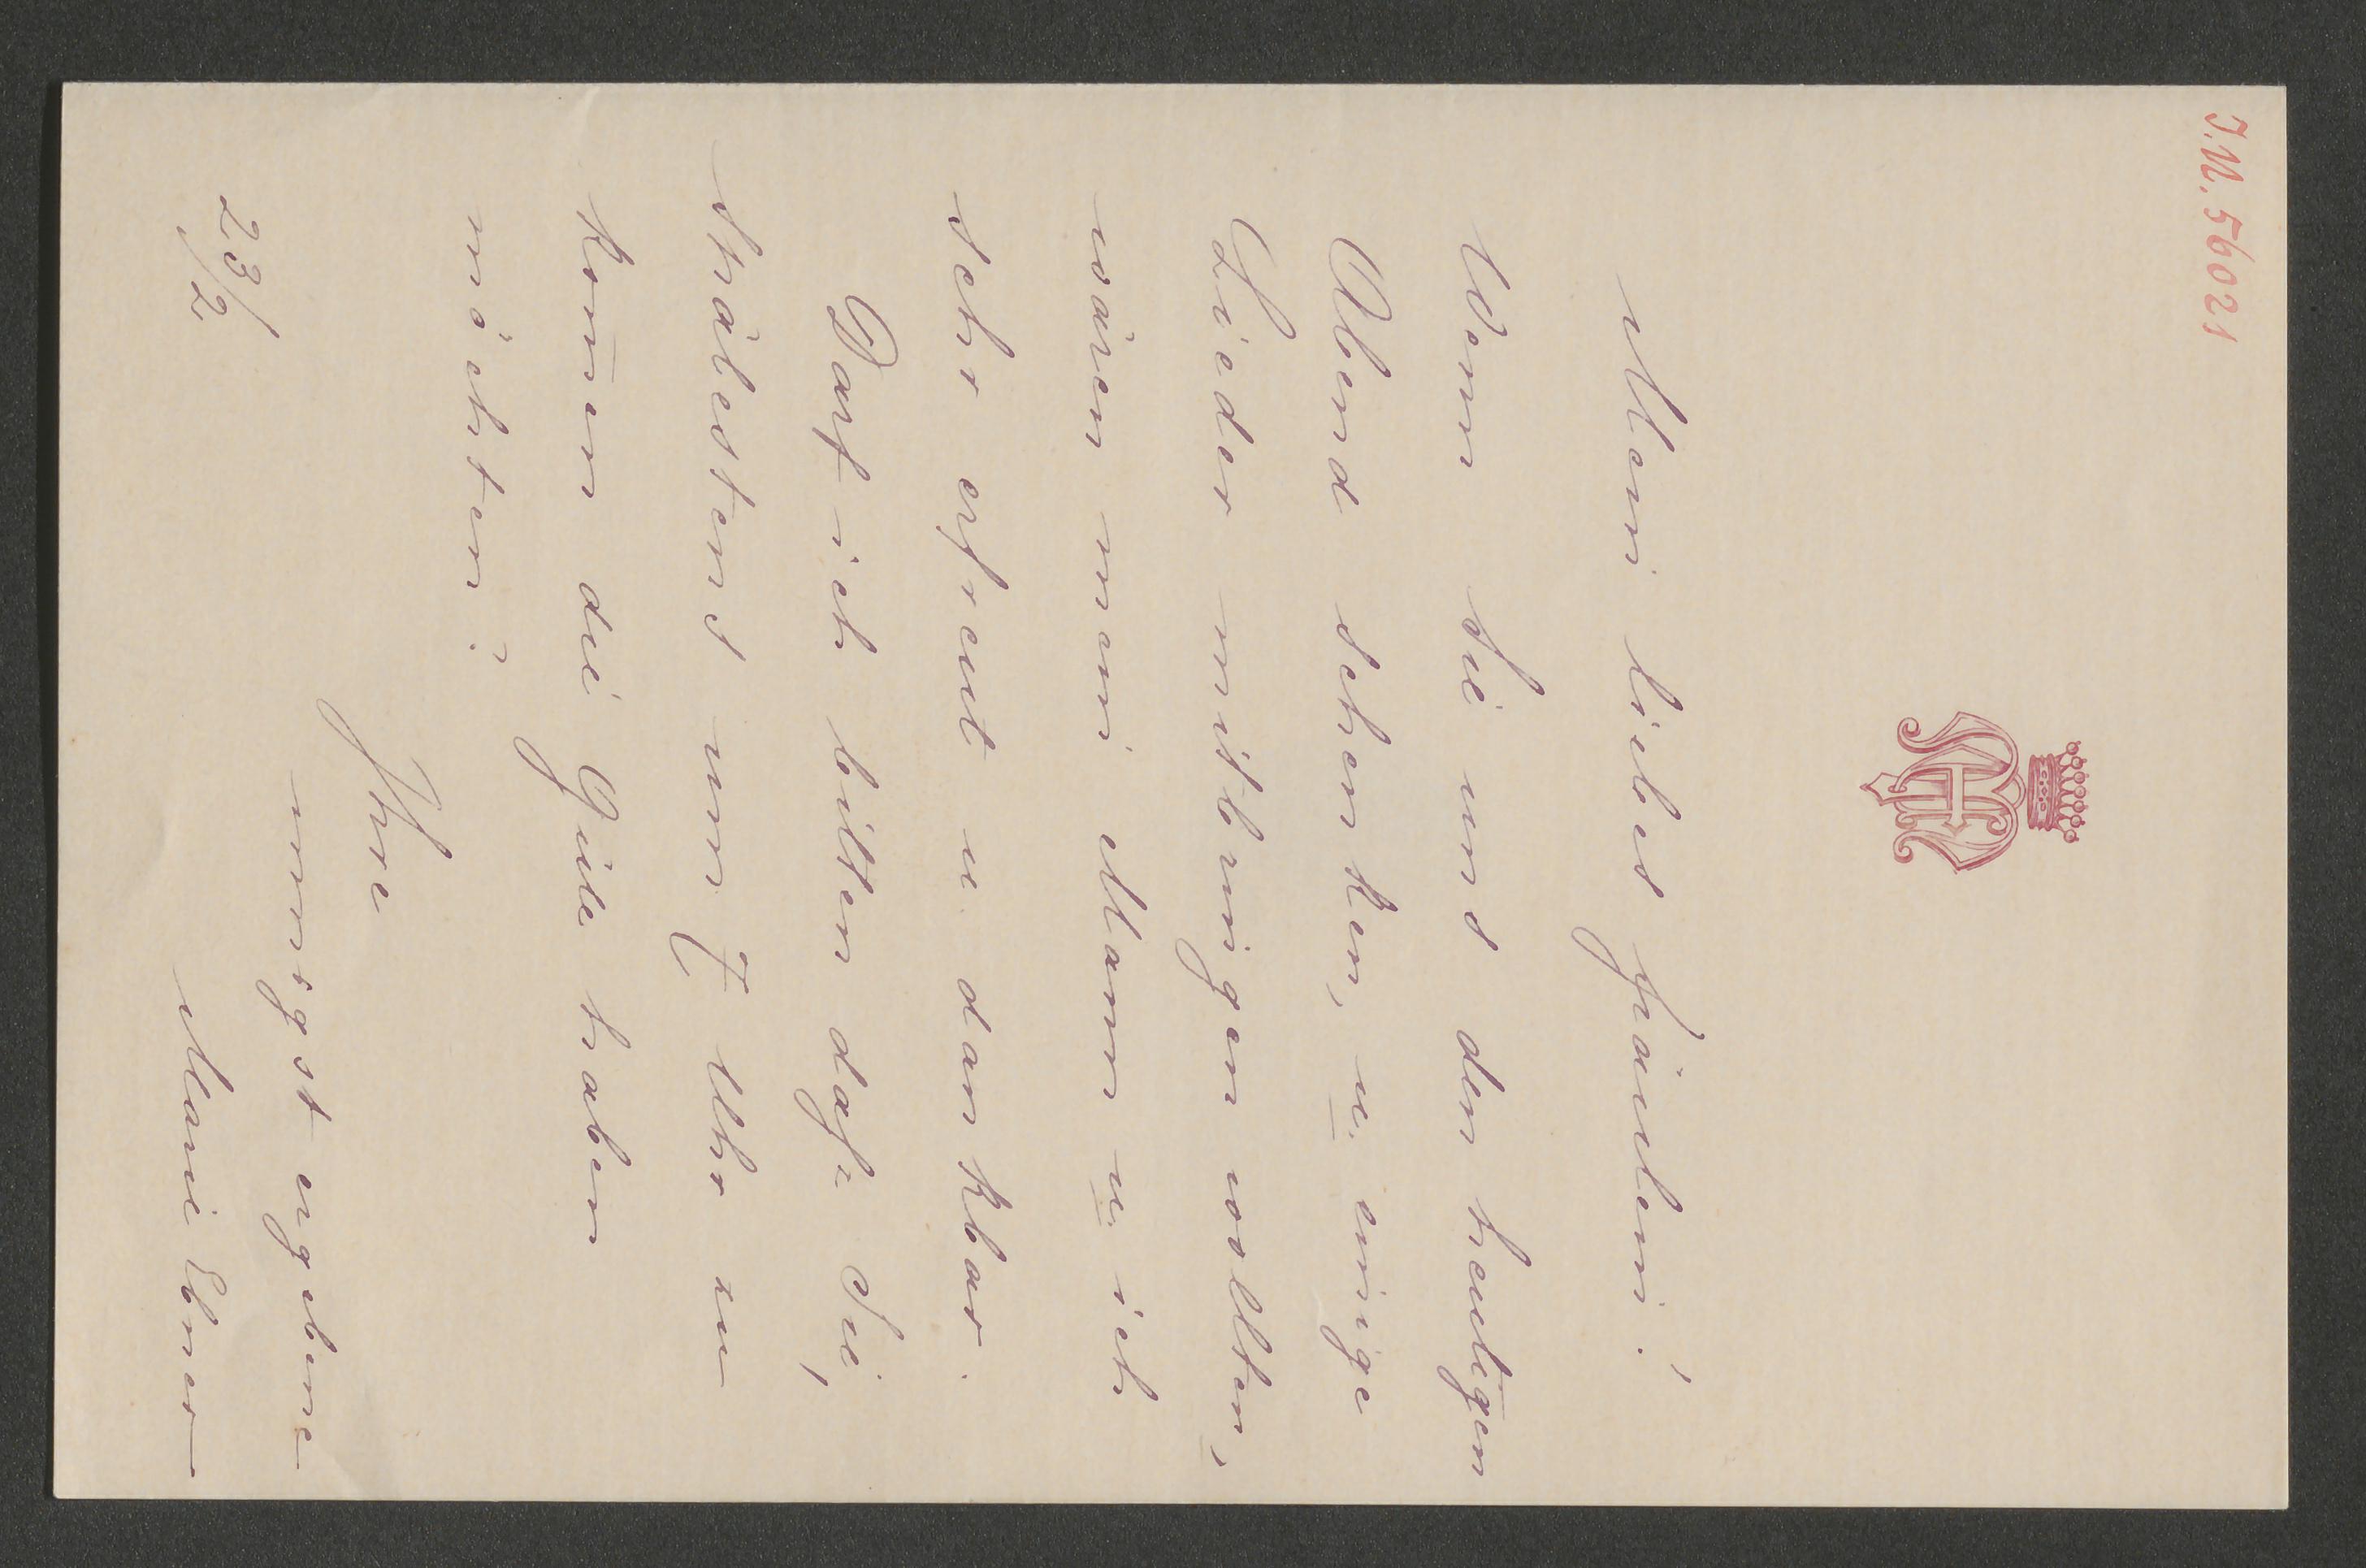 I.N. 56021
Mein liebes Fräulein!
Wenn Sie uns den heutigen
Abend schenken, u. einige
Lieder mitbringen wollten,
wären mein Mann u. ich
sehr erfreut u. dankbar.
Darf ich bitten daß Sie,
spätestens um 7 Uhr zu
kom̄en die Güte haben
möchten?
Ihre
innigst ergebene
Marie Ebner
23/2